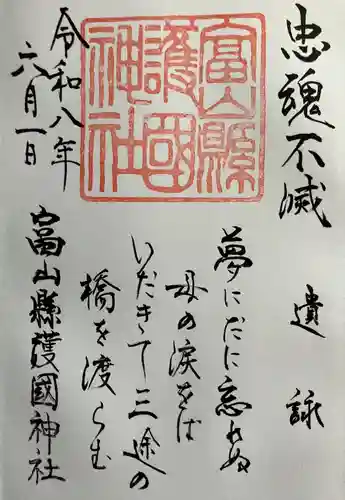 忠魂不滅
遺詠
夢にだに忘れぬ
母の涙をば
いだきて三途の
橋を渡らむ
富山縣護國神社
令和八年
六月一日
富山縣護國神社